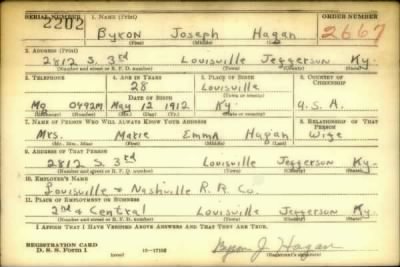 SERIAL NUMBER 1. NAME (Print) ORDER NUMBER
2202 Byron Joseph Hagan 2667
(First) (Middle) (Last)
2. ADDRESS (Print)
2812 S. 3rd Louisville Jefferson Ky.
(Number and street or R. F. D. number) (Town) (County) (State)
3. TELEPHONE 4. AGE IN YEARS 5. PLACE OF BIRTH 6. COUNTRY OF CITIZENSHIP
28 Louisville
DATE OF BIRTH (Town or county)
Mg 0492M May 12 1912 Ky. U.S.A.
(Exchange) (Number) (Mo.) (Day) (Yr.) (State or country)
7. NAME OF PERSON WHO WILL ALWAYS KNOW YOUR ADDRESS 8. RELATIONSHIP OF THAT PERSON
Mrs. Marie Emma Hagan Wife
(Mr., Mrs., Miss) (First) (Middle) (Last)
9. ADDRESS OF THAT PERSON
2812 S. 3rd Louisville Jefferson Ky.
(Number and street or R. F. D. number) (Town) (County) (State)
10. EMPLOYER'S NAME
Louisville & Nashville R. R. Co.
11. PLACE OF EMPLOYMENT OR BUSINESS
2nd & Central Louisville Jefferson Ky.
(Number and street or R. F. D. number) (Town) (County) (State)
I AFFIRM THAT I HAVE VERIFIED ABOVE ANSWERS AND THAT THEY ARE TRUE.
REGISTRATION CARD
D. S. S. Form 1 Byron J. Hagan
(Registrant's signature)